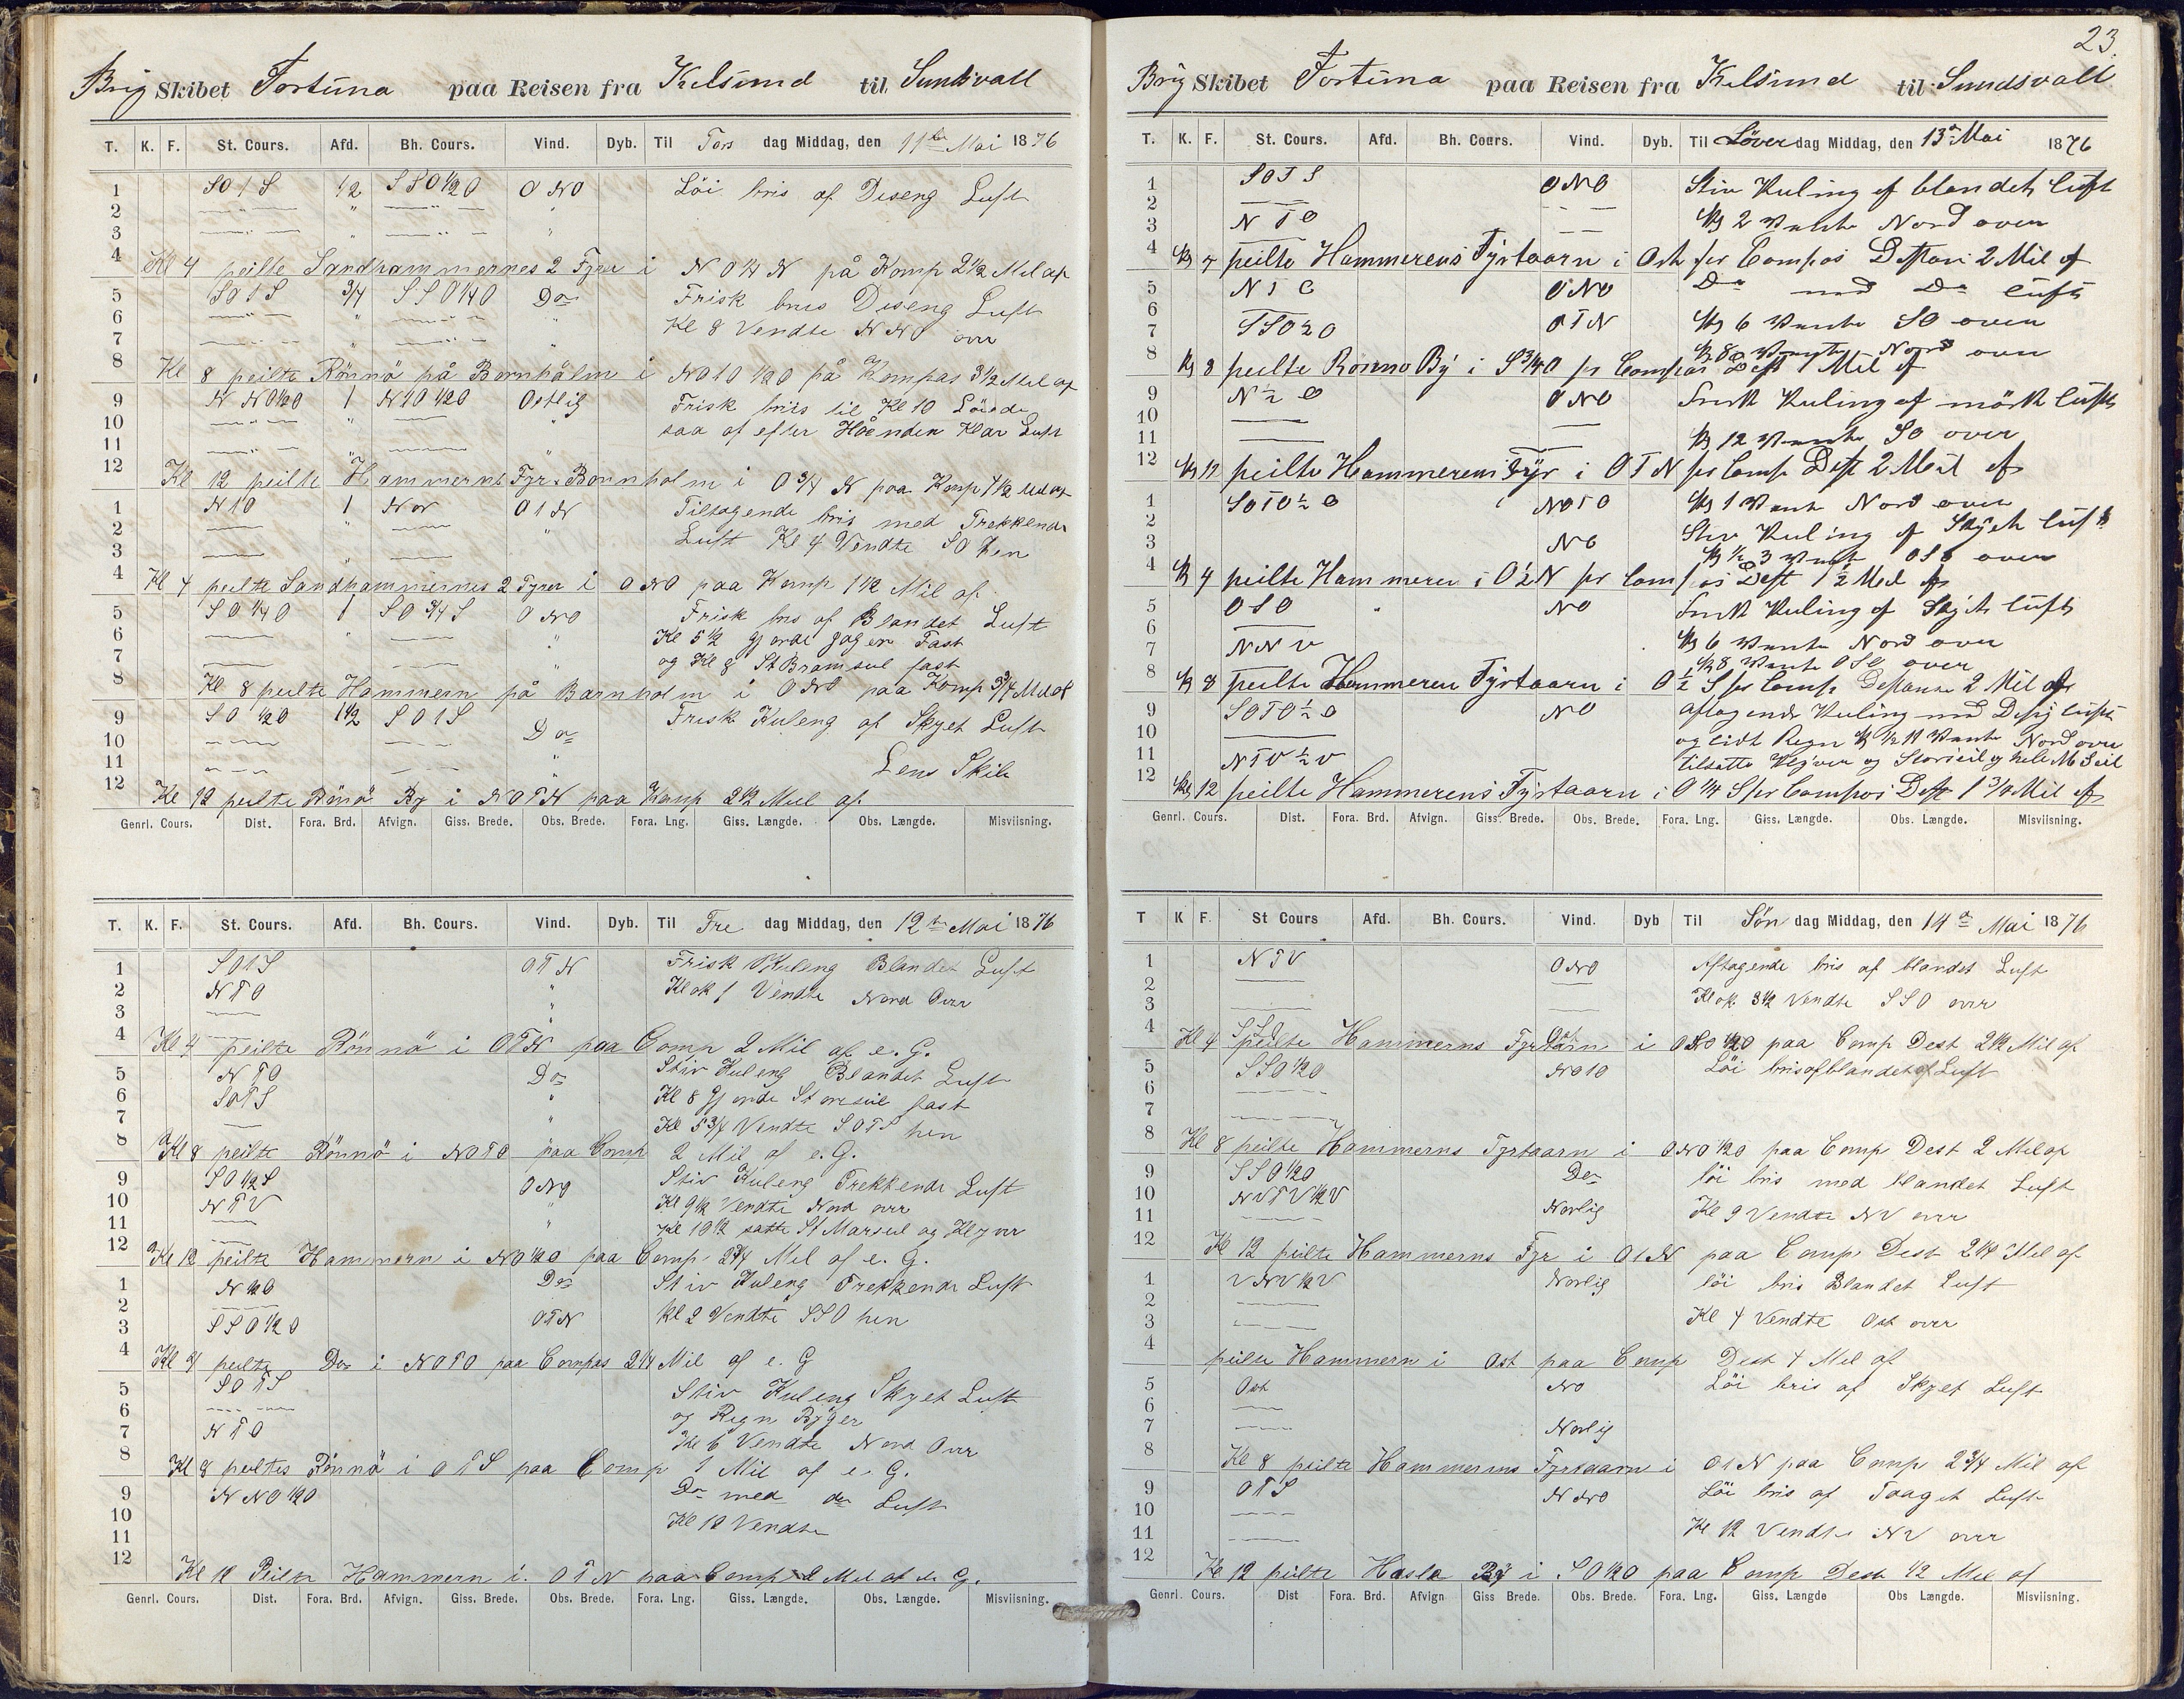 Brig Skibet Fortuna paa Reisen fra Kilsund til Sundsvall
T. K. F. St. Cours. Afd. Bh. Cours. Vind. Dyb. Til Tors dag Middag, den 11te Mai 1876
1 SO T S 1/2 SSO 1/2 O ONO Löi bris af Diseng Luft
2
3
4 Kl 4 peilte Sandhammernes 2 Fyre i NO 1/4 N på Komp 2 1/2 Mil af
5 SO T S 3/4 SSO 1/4 O Do Frisk bris Diseng Luft
6 Kl 8 Vendte NNO over
7
8 Kl 8 peilte Rönnö på Bornhölm i NO T O 1/2 O på Kompas 3 1/2 Mil af
9 NNO 1/2 O 1 N T O 1/2 O Ostlig Frisk bris til Kl 10
10 saa af efter Klar Luft
11
12 Kl 12 peilte Hammerns Fyr Bornholm i O 3/4 N paa Komp 1 1/2 Mil af
1 N T O 1 Nor O T N Tiltagende bris med Trekkende
2 Luft Kl 4 Vendte SO hen
3
4 Kl 4 peilte Sandhammernes 2 Fyrer i ONO paa Komp 1 1/2 Mil af
5 SO 1/4 O 1 SO 3/4 S ONO Frisk bris af Blandet Luft
6 Kl 5 1/2 gjorde Jager Fast
7 og Kl 8 St Bramseil fast
8 Kl 8 peilte Hammern på Barnholm i ONO paa Komp 3/4 Mil af
9 SO 1/2 O 1 1/2 SO T S Do Frisk Kuleng af Skyet Luft
10
11 Lens Skib
12 Kl 12 peilte Rönö By i NO T N paa Komp 2 1/2 Mil af
Genrl. Cours. Dist. Fora. Brd. Afvign. Giss. Brede. Obs. Brede. Fora. Lng. Giss. Længde. Obs. Længde. Misviisning.
T. K. F. St. Cours. Afd. Bh. Cours. Vind. Dyb. Til Fre dag Middag, den 12te Mai 1876
1 SO T S O T N Frisk Kuleng Blandet Luft
2 N T O Klok 1 Vendte Nord Over
3
4 Kl 4 peilte Rönnö i O T N paa Comp 2 Mil af e. G.
5 N T O Do Stiv Kuleng Blandet Luft
6 SO T S Kl 8 Gjorde Storeseil fast
7 Kl 5 3/4 Vendte SO T S hen
8 Kl 8 peilte Rönnö i NO T O paa Comp 2 Mil af e. G.
9 SO 1/2 S ONO Stiv Kuleng Trekkende Luft
10 N T V Kl 9 1/2 Vendte Nord over
11 Kl 10 1/2 satte St Marseil og Klyver
12 Kl 12 peilte Hammern i NO 1/2 O paa Comp 2 3/4 Mil af e. G.
1 N 1/2 O Do Stiv Kuleng Trekkende Luft
2 Kl 2 Vendte SSO hen
3 SSO 1/2 O O T N
4 Kl 4 peilte Do i NO T O paa Compas 2 1/4 Mil af e. G
5 SO T S Stiv Kuleng Skyet Luft
6 og Regn Byger
7 N T O Kl 6 Vendte Nord Over
8 Kl 8 peiltes Rönnö i O T S paa Comp 1 Mil af e. G.
9 NNO 1/2 O Do med do Luft
10 Kl 12 Vendte
11
12 Kl 12 Peilte Hammern i O T N paa Comp 2 Mil af e. G.
Genrl. Cours. Dist. Fora. Brd. Afvign. Giss. Brede. Obs. Brede. Fora. Lng. Giss. Længde. Obs. Længde. Misviisning.
23.
Brig Skibet Fortuna paa Reisen fra Kilsund til Sundsvall
T. K. F. St. Cours. Afd. Bh. Cours. Vind. Dyb. Til Löver dag Middag, den 13de Mai 1876
1 SO T S ONO Stiv Kuling af blandet luft
2 Kl 2 Vendte Nord over
3 N T O
4 Kl 4 peilte Hammerens Fyrtaarn i Ost per Compas Distan 2 Mil af
5 N T O ONO Do med Do luft
6 Kl 6 Vendte SO over
7 SSO 1/2 O O T N Kl 8 Vendte Nord over
8 Kl 8 peilte Rönno By i S 3/4 O per Compas Dist 1 Mil af
9 N 1/2 O ONO Frisk Kuling af mörk luft
10
11 Kl 12 Vendte SO over
12 Kl 12 peilte Hammerens Fyr i O T N per Comp Dist 2 Mil af
1 SO T O 1/2 O NO T O Kl 1 Vente Nord over
2 Stiv Kuling af Skyet luft
3 NO Kl 1/2 3 Vendte OSO over
4 Kl 4 peilte Hammeren i O 1/2 N per Compas Dist 1 1/2 Mil af
5 OSO NO Frisk Kuling af Skyet luft
6 Kl 6 Vente Nord over
7 NNV Kl 8 Vente OSO over
8 Kl 8 peilte Hammeren Fyrtaarn i O 1/2 S per Comp Distance 2 Mil af
9 SO T O 1/2 O NO Aftagende Kuling med Disig luft
10 og lidt Regn Kl 1/2 11 Vente Nord over
11 N T V 1/2 V tilsatte Klyver og Storseil og hele M Seil
12 Kl 12 peilte Hammerens Fyrtaarn i O 1/4 S per Compas Dist 1 3/4 Mil af
Genrl. Cours. Dist. Fora. Brd. Afvign. Giss. Brede. Obs. Brede. Fora. Lng. Giss. Længde. Obs. Længde. Misviisning.
T K F. St Cours Afd. Bh. Cours. Vind. Dyb Til Sön dag Middag, den 14de Mai 1876
1 N T V ONO Aftagende bris af blandet Luft
2 Klok 3 1/2 Vendte SSO over
3
4 Kl 4 peilte Hammerns Fyrtarn i ONO 1/2 O paa Comp Dest 2 1/2 Mil af
5 SSO 1/2 O NO T O Löi bris af blandet Luft
6
7
8 Kl 8 peilte Hammerns Fyrtaarn i ONO 1/2 O paa Comp Dest 2 Mil af
9 SSO 1/2 O Do löi bris med blandet Luft
10 NV T V 1/2 V Norlig Kl 9 Vendte NV over
11
12 Kl 12 peilte Hammerns Fyr i O T N paa Comp Dest 2 1/4 Mil af
1 VNV 1/2 V Norlig löi bris Blandet Luft
2
3 Kl 4 Vendte Ost over
4 peilte Hammern i Ost paa Comp Dest 4 Mil af
5 Ost No Löi bris af Skyet Luft
6
7 Norlig
8 Kl 8 peilte Hammerns Fyrtaarn i O T N paa Comp 2 3/4 Mil af
9 O T S NNO Löi bris af Taaget Luft
10
11 Kl 12 Vendte NV over
12 Kl 12 peilte Hasle By i SO 1/2 O paa Comp Dest 1/2 Mil af
Genrl. Cours. Dist Fora. Brd. Afvign Giss Brede. Obs. Brede. Fora. Lng. Giss. Længde Obs Længde. Misviisning.